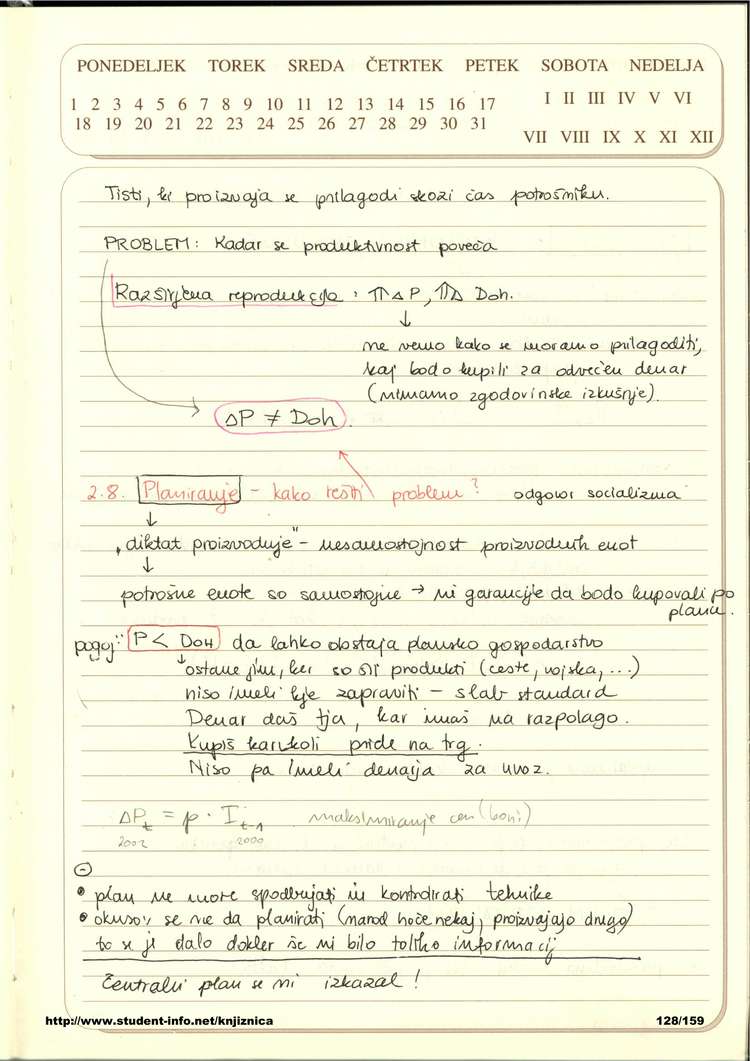 PONEDELJEK TOREK SREDA ČETRTEK PETEK SOBOTA NEDELJA
1 2 3 4 5 6 7 8 9 10 11 12 13 14 15 16 17
18 19 20 21 22 23 24 25 26 27 28 29 30 31
I II III IV V VI
VII VIII IX X XI XII
Tisti, ki proizvaja se prilagodi skozi čas potrošniku.
PROBLEM: Kadar se produktivnost poveča
Razširjena reprodukcija: ⇈ΔP, ⇈Δ Doh.
↓
ne vemo kako se moramo prilagoditi,
kaj bodo kupili za odvečen denar
(nimamo zgodovinske izkušnje).
ΔP ≠ Doh.
2.8. Planiranje - kako rešiti problem? odgovor socializma
↓
"diktat proizvodnje" - nesamostojnost proizvodnih enot
↓
potrošne enote so samostojne → ni garancije da bodo kupovali po
planu.
pogoj: P < DOH da lahko obstaja plansko gospodarstvo
↓ ostane jim, ker so šli produkti (ceste, vojska, ...)
niso imeli kje zapraviti - slab standard
Denar daš tja, kar imaš na razpolago.
Kupiš karkoli pride na trg.
Niso pa imeli denarja za uvoz.
ΔPt = p · It-1 maksimiranje cen (boni)
2002 2000
⊖
• plan ne more spodbujati in kontrolirati tehnike
• okusov se ne da planirati (narod hoče nekaj, proizvajajo drugo)
to se ji dalo dokler še ni bilo toliko informacij
Centralni plan se ni izkazal!
http://www.student-info.net/knjiznica
128/159